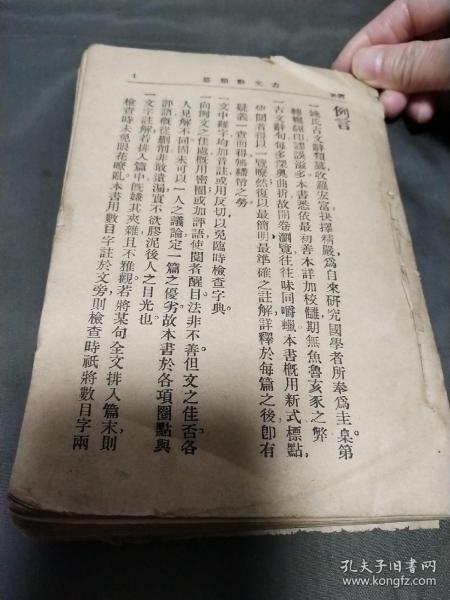 古文辭類纂
1
例言
一姚氏古文辭類纂收羅安富抉擇精嚴爲自來研究國學者所奉爲圭臬第
輾轉翻印謬誤滋多本書悉依最初善本詳加校讎期無魚魯亥豕之弊
一古文辭句每多深奧曲折故開卷瀏覽往往味同嚼蠟本書槪用新式標點,
使閱者得以一覽瞭然復以最簡明最準確之註解,詳釋於每篇之後卽有
疑義一查而得無繙帋之勞
一文中難字均加音註或用反切以免臨時檢查字典。
一向例文之佳處槪用密圈或加評語使閱者醒目法非不善但文之佳否各
人見解不同固未可以一人之議論定一篇之優劣故本書於各項圈點與
評語槪從刪節非敢遺漏實不欲膠泥後人之目光也
一文字註解若排入篇中旣嫌其夾雜且不雅觀若將某句全文排入篇末則
檢查時未免眼花瞭亂本書用數目字註於文旁則檢查時祇將數目字兩
孔夫子旧书网
www.kongfz.com